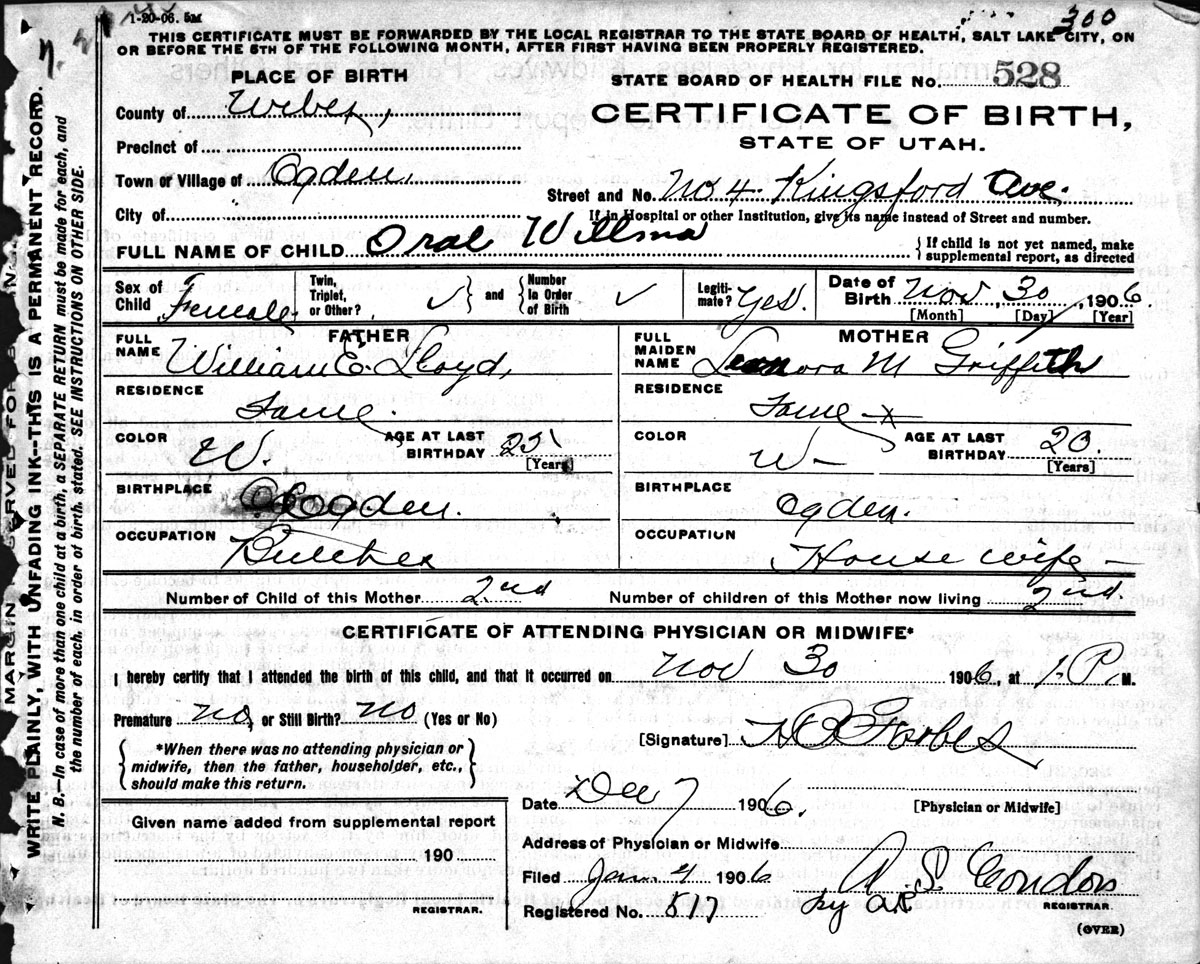 1-20-06. 5M
300
THIS CERTIFICATE MUST BE FORWARDED BY THE LOCAL REGISTRAR TO THE STATE BOARD OF HEALTH, SALT LAKE CITY, ON
OR BEFORE THE 5TH OF THE FOLLOWING MONTH, AFTER FIRST HAVING BEEN PROPERLY REGISTERED.
PLACE OF BIRTH
STATE BOARD OF HEALTH FILE No. 528
County of Weber,
CERTIFICATE OF BIRTH,
Precinct of
STATE OF UTAH.
Town or Village of Ogden,
Street and No. No 4 Kingsford Ave.
City of
If in Hospital or other Institution, give its name instead of Street and number.
FULL NAME OF CHILD Oral Willma
{If child is not yet named, make supplemental report, as directed
Sex of Child Female
Twin, Triplet, or Other? ✓ and Number in Order of Birth ✓
Legitimate? Yes.
Date of Birth Nov 30, 1906.
[Month] [Day] [Year]
FATHER
FULL NAME William E. Lloyd,
MOTHER
FULL MAIDEN NAME Leonora M Griffith
RESIDENCE Same.
RESIDENCE Same
COLOR W.
AGE AT LAST BIRTHDAY 25 [Years]
COLOR W
AGE AT LAST BIRTHDAY 23. [Years]
BIRTHPLACE Ogden.
BIRTHPLACE Ogden.
OCCUPATION Butcher
OCCUPATION House wife
Number of Child of this Mother 2nd
Number of children of this Mother now living 2nd.
CERTIFICATE OF ATTENDING PHYSICIAN OR MIDWIFE*
I hereby certify that I attended the birth of this child, and that it occurred on Nov 30 1906, at 1. P. M.
Premature no, or Still Birth? no (Yes or No)
[Signature] Forbes
*When there was no attending physician or
midwife, then the father, householder, etc.,
should make this return.
Date Dec 7 1906.
[Physician or Midwife]
Given name added from supplemental report
190
REGISTRAR.
Address of Physician or Midwife
Filed Jan. 4 1906
A. S. Condon
by
REGISTRAR.
Registered No. 817
(OVER)
MARGIN RESERVED FOR BINDING.
WRITE PLAINLY, WITH UNFADING INK--THIS IS A PERMANENT RECORD.
N. B.—In case of more than one child at a birth, a SEPARATE RETURN must be made for each, and
the number of each, in order of birth, stated. SEE INSTRUCTIONS ON OTHER SIDE.